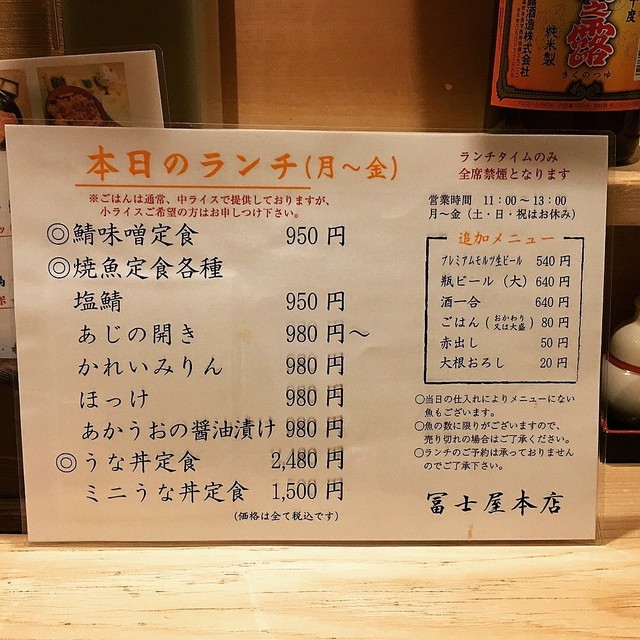 本日のランチ(月～金)
※ごはんは通常、中ライスで提供しておりますが、
小ライスご希望の方はお申しつけ下さい。
◎鯖味噌定食 950 円
◎焼魚定食各種
塩鯖 950 円
あじの開き 980 円～
かれいみりん 980 円
ほっけ 980 円
あかうおの醤油漬け 980 円
◎うな丼定食 2,480 円
ミニうな丼定食 1,500 円
(価格は全て税込です)
ランチタイムのみ
全席禁煙となります
営業時間 11:00～13:00
月～金(土・日・祝はお休み)
追加メニュー
プレミアムモルツ生ビール 540 円
瓶ビール(大) 640 円
酒一合 640 円
ごはん(おかわり又は大盛) 80 円
赤出し 50 円
大根おろし 20 円
○当日の仕入れによりメニューにない
魚もございます。
○魚の数に限りがございますので、
売り切れの場合はご了承ください。
○ランチのご予約は承っておりません
のでご了承下さい。
冨士屋本店
酒造株式会社
純米製
露
きくのつゆ